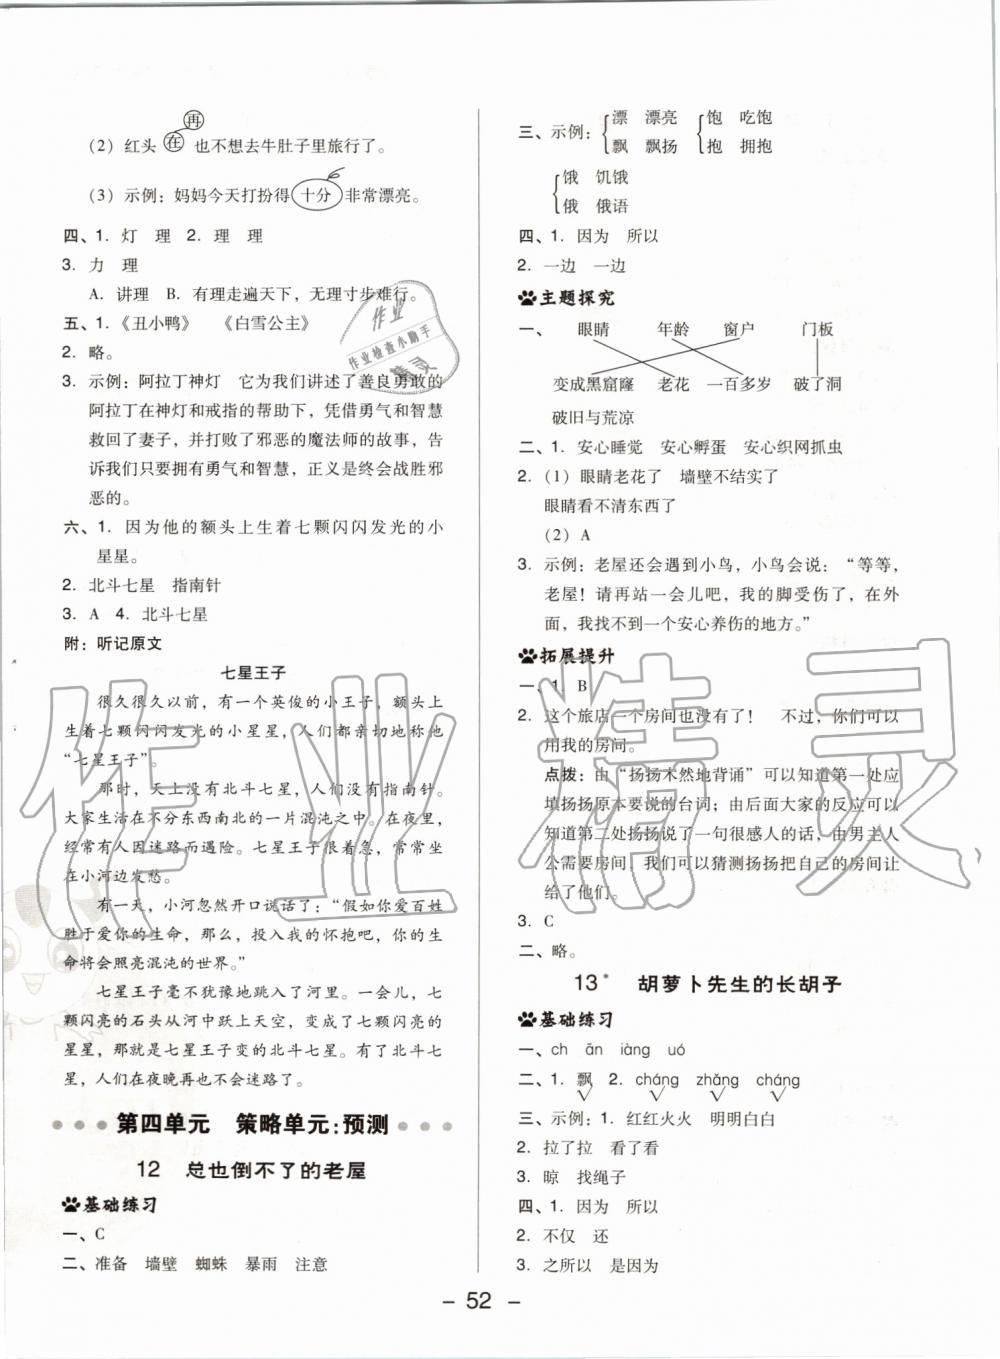 再
(2) 红头 在 也不想去牛肚子里旅行了。
(3) 示例：妈妈今天打扮得 十分 非常漂亮。
四、1. 灯 理 2. 理 理
3. 力 理
A. 讲理 B. 有理走遍天下，无理寸步难行。
五、1.《丑小鸭》 《白雪公主》
2. 略。
3. 示例：阿拉丁神灯 它为我们讲述了善良勇敢的
阿拉丁在神灯和戒指的帮助下，凭借勇气和智慧
救回了妻子，并打败了邪恶的魔法师的故事，告
诉我们只要拥有勇气和智慧，正义是终会战胜邪
恶的。
六、1. 因为他的额头上生着七颗闪闪发光的小
星星。
2. 北斗七星 指南针
3. A 4. 北斗七星
附：听记原文
七星王子
很久很久以前，有一个英俊的小王子，额头上
生着七颗闪闪发光的小星星，人们都亲切地称他
“七星王子”。
那时，天上没有北斗七星，人间没有指南针。
大家生活在不分东西南北的一片混沌之中。在夜里，
经常有人因迷路而遇险。七星王子很着急，常常坐
在小河边发愁。
有一天，小河忽然开口说话了：“假如你爱百姓
胜于爱你的生命，那么，投入我的怀抱吧，你的生
命将会照亮混沌的世界。”
七星王子毫不犹豫地跳入了河里。一会儿，七
颗闪亮的石头从河中跃上天空，变成了七颗闪亮的
星星，那就是七星王子变的北斗七星。有了北斗七
星，人们在夜晚再也不会迷路了。
第四单元 策略单元：预测
12 总也倒不了的老屋
基础练习
一、C
二、准备 墙壁 蜘蛛 暴雨 注意
三、示例：漂 漂亮 饱 吃饱
飘 飘扬 抱 拥抱
饿 饥饿
俄 俄语
四、1. 因为 所以
2. 一边 一边
主题探究
一、 眼睛 年龄 窗户 门板
变成黑窟窿 老花 一百多岁 破了洞
破旧与荒凉
二、1. 安心睡觉 安心孵蛋 安心织网抓虫
2. (1) 眼睛老花了 墙壁不结实了
眼睛看不清东西了
(2) A
3. 示例：老屋还会遇到小鸟，小鸟会说：“等等，
老屋！请再站一会儿吧，我的脚受伤了，在外
面，我找不到一个安心养伤的地方。”
拓展提升
一、1. B
2. 这个旅店一个房间也没有了！ 不过，你们可以
用我的房间。
点拨：由“扬扬木然地背诵”可以知道第一处应
填扬扬原本要说的台词；由后面大家的反应可以
知道第二处扬扬说了一句很感人的话，由男主人
公需要房间，我们可以猜测扬扬把自己的房间让
给了他们。
3. C
二、略。
13* 胡萝卜先生的长胡子
基础练习
一、ch ān iàng uó
二、1. 飘 2. cháng zhǎng cháng
三、示例：1. 红红火火 明明白白
2. 拉了拉 看了看
3. 晾 找绳子
四、1. 因为 所以
2. 不仅 还
3. 之所以 是因为
– 52 –
作业
作业检查小助手
精灵
作业精灵